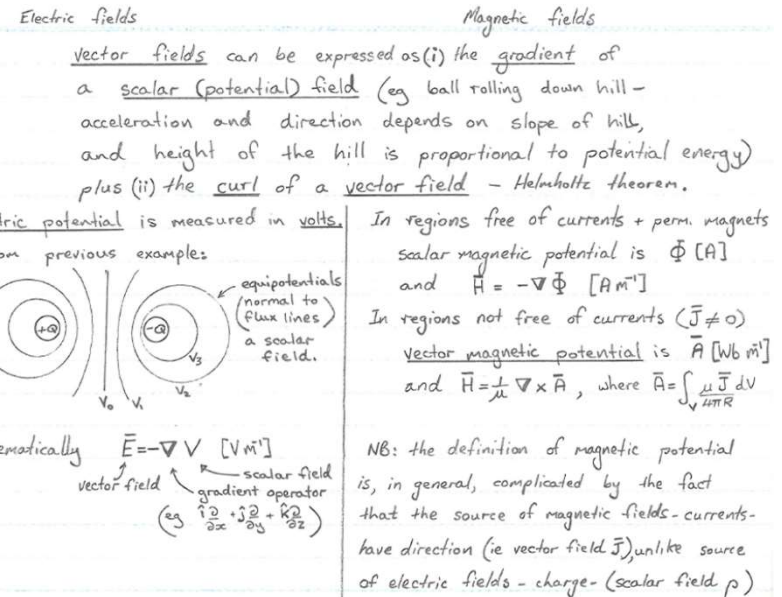 Electric fields
Magnetic fields
vector fields can be expressed as (i) the gradient of
a scalar (potential) field (eg ball rolling down hill –
acceleration and direction depends on slope of hill,
and height of the hill is proportional to potential energy)
plus (ii) the curl of a vector field – Helmholtz theorem.
tric potential is measured in volts.
om previous example:
+Q
-Q
equipotentials
(normal to
flux lines)
a scalar
field.
V₃
V₂
V₀ V₁
ematically Ē = -∇ V [V m⁻¹]
vector field
scalar field
gradient operator
(eg î ∂/∂x + ĵ ∂/∂y + k̂ ∂/∂z)
In regions free of currents + perm. magnets
scalar magnetic potential is Φ̄ [A]
and H̄ = -∇ Φ̄ [A m⁻¹]
In regions not free of currents (J̄ ≠ 0)
vector magnetic potential is Ā [Wb m⁻¹]
and H̄ = 1/μ ∇ × Ā , where Ā = ∫ᵥ μ J̄ dV / 4πR
NB: the definition of magnetic potential
is, in general, complicated by the fact
that the source of magnetic fields - currents -
have direction (ie vector field J̄), unlike source
of electric fields - charge - (scalar field ρ)